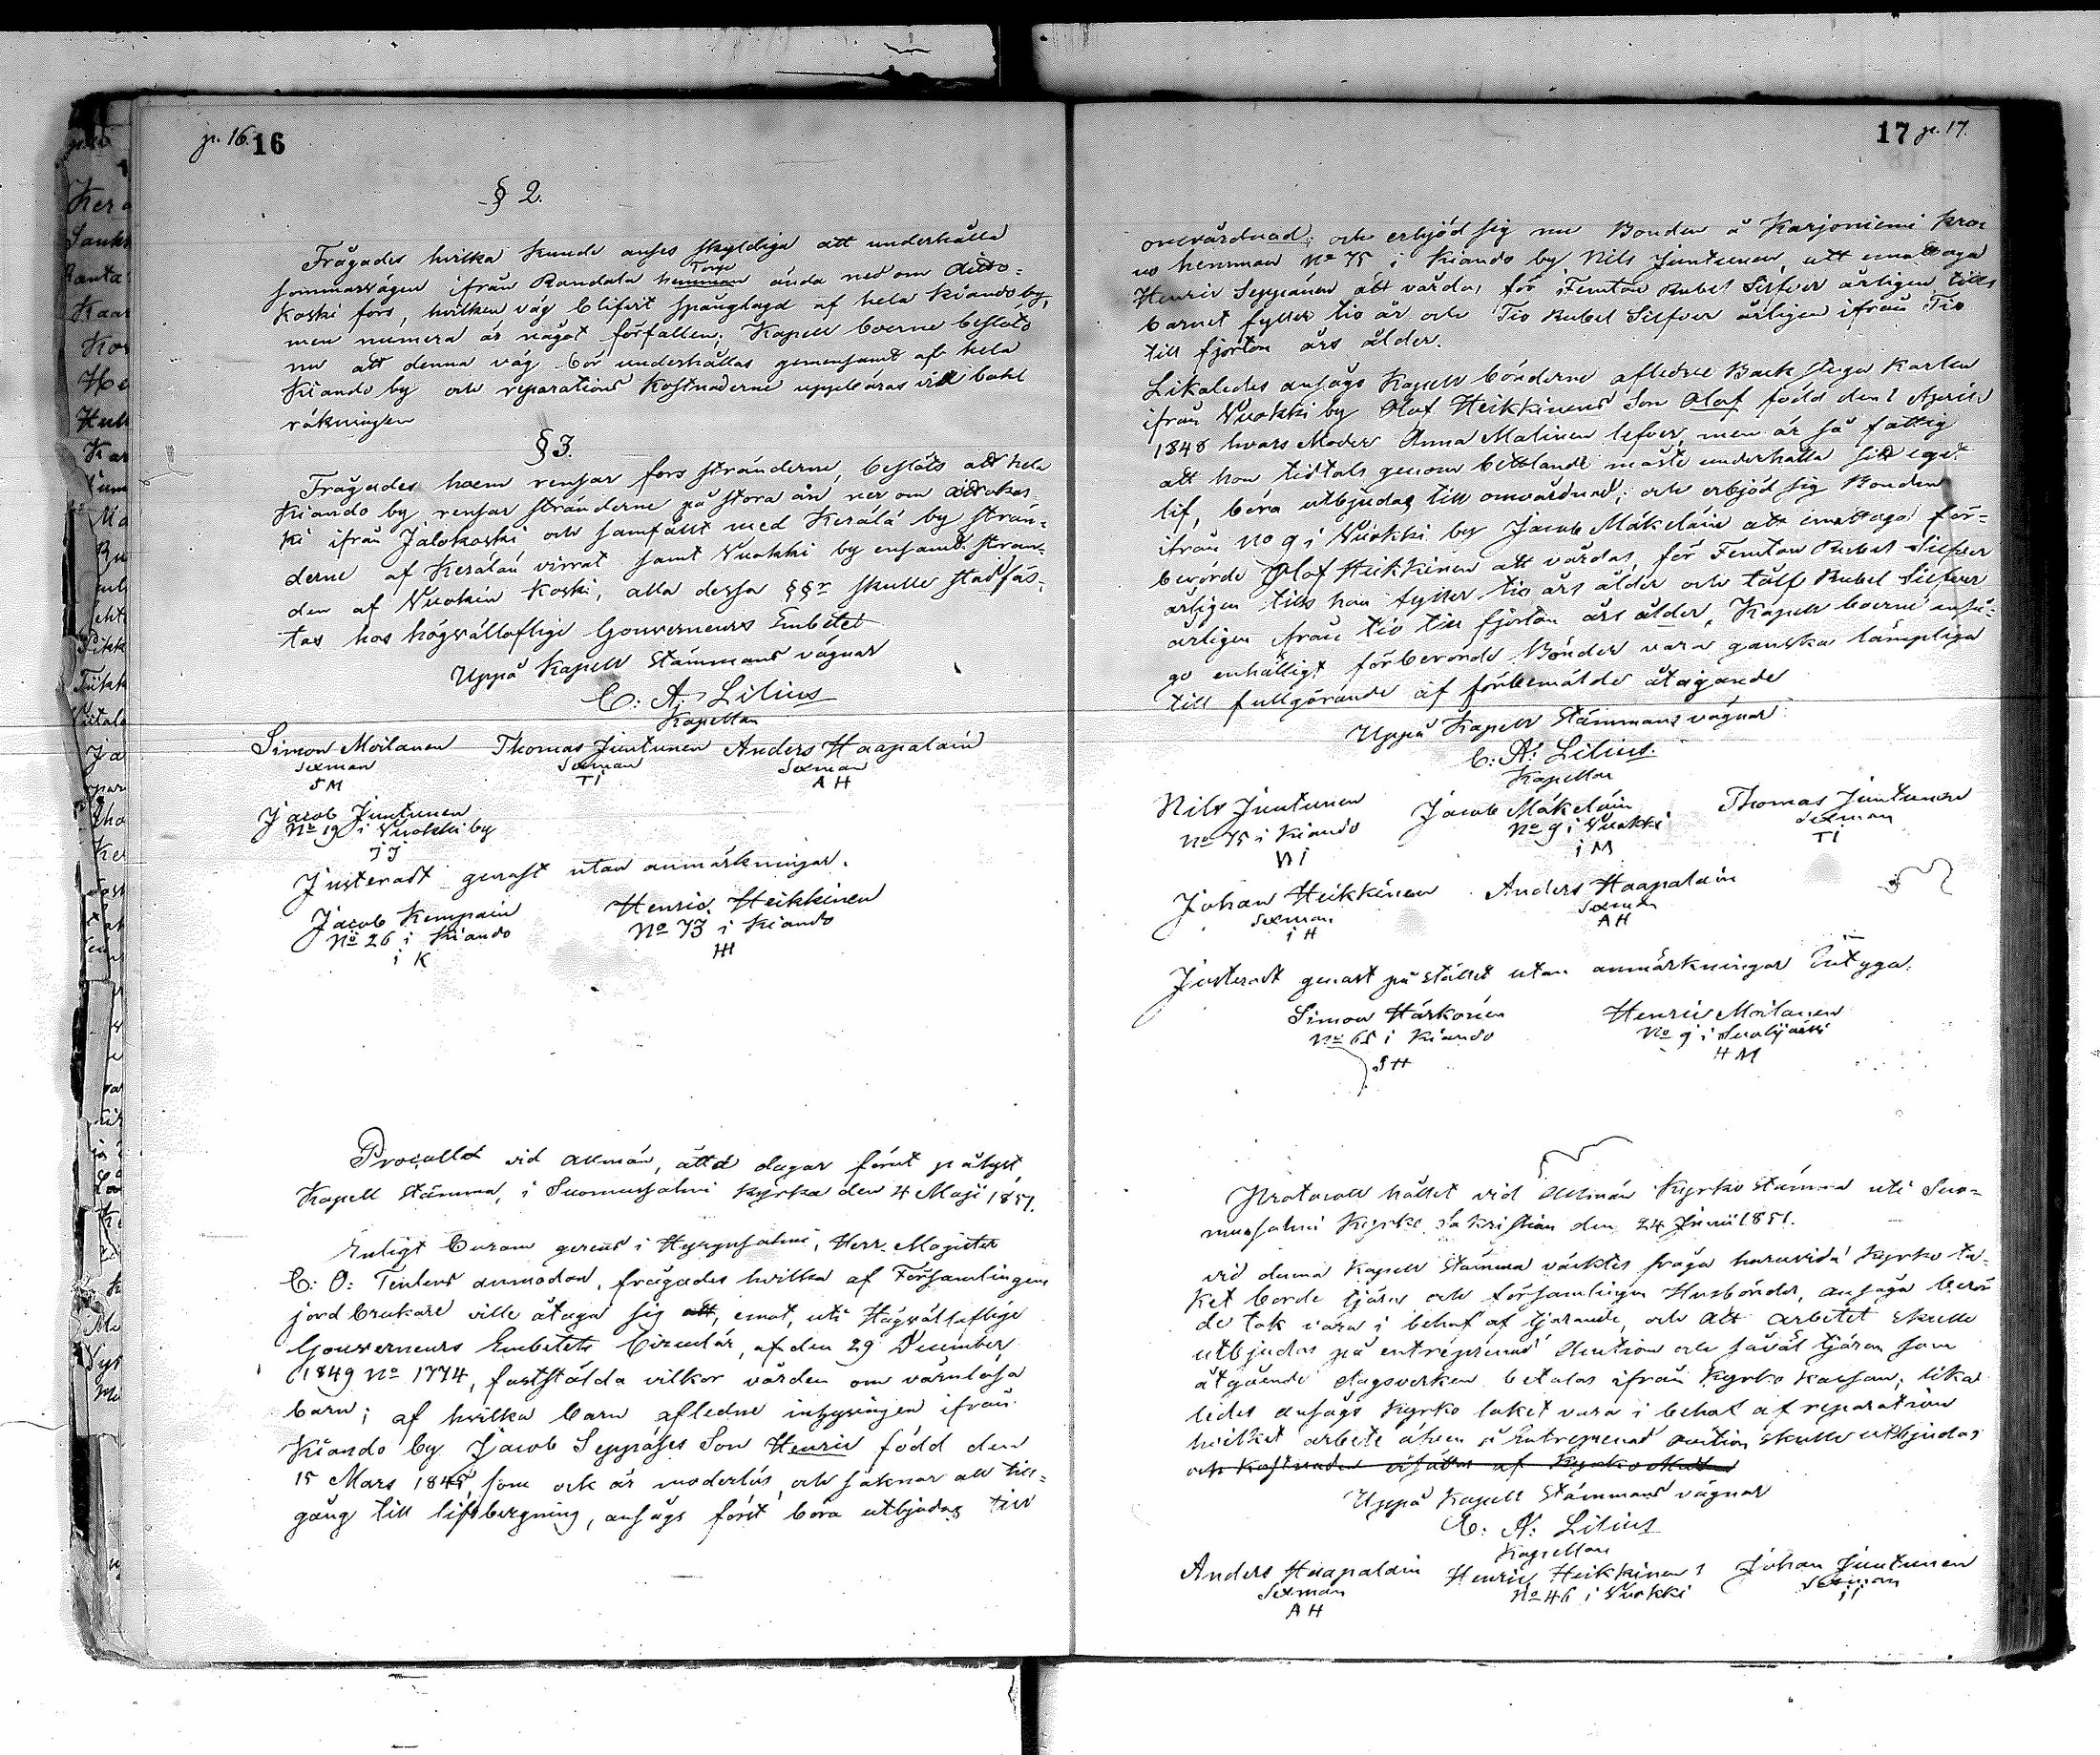 p. 16. 16
§ 2.
Frågades hvilka kunde anses skyldiga att underhålla
Torp
sommarvägen ifrån Randala hemman ända ned om Aitto=
koski fors, hvilken väg blifvit spånglagd af hela Kiando by,
men numera är något förfallen; Kapell boerne beslöto
nu att denna väg bör underhållas gemensamt af hela
Kiando by och reparations kostnaderne uppbäras vid bohl
räkningen
§ 3.
Frågades hvem rensar fors stränderne, beslöts att hela
Kiando by rensar stränderne på stora ån ner om Aittokos=
ki ifrån Jalokoski och samfällt med Kerälä by strän=
derne af Kerälän virrat samt Vuokki by ensamt stran=
den af Vuokin koski, alla dessa §§r skulle stadfäs=
tas hos högvällofliga Gouverneurs Embetet
Uppå Kapell Stämmans vägnar
C: A: Lilius
Kapellan
Simon Moilanen Thomas Juntunen Anders Haapalain
Sexman Sexman Sexman
SM TI AH
Jacob Juntunen
No 19 i Vuokki by
JJ
Justeradt genast utan anmärkningar.
Jacob Kempain Henric Heikkinen
No 26 i Kiando No 73 i Kiando
i K HH
Procolld vid allmän, åtta dagar förut pålyst,
Kapell Stämma, i Suomusjalmi Kyrka den 4 Maji 1851.
Enligt Curam gerens i Hyrynsalmi, Herr Magister
C: O: anmodan, frågades hvilka af Församlingens
jord brukare ville åtaga sig att, emot, uti Högvällofliga
Gouverneurs Embetets Circulär, af den 29 December
1849 No 1774, faststälda vilkor vården om värnlösa
barn; af hvilka barn afledne inhysingen ifrån
Kiando by Jacob Seppäses Son Henric född den
15 Mars 1845, som ock är moderlös, och saknar all till=
gång till lifsbergning, ansågs först böra utbjudas till
17 p. 17.
omvårdnad; och erbjöd sig nu Bonden å Karjoniemi kro
no hemman No 75 i Kiando by Nils Juntunen, att emottaga
Henric Seppänen att vårda, för Femton Rubel Silfver årligen tills
barnet fyller tio år och Tio Rubel Silfver årligen ifrån Tio
till fjorton års ålder.
Likaledes ansågs Kapell bönderne afledne Back stuga Karlen
ifrån Vuokki by Olof Heikkinens Son Olof född den 1 Aprill
1848 hvars Moder Anna Malinen lefver, men är så fattig
att hon tidtals genom bettlande måste underhålla sitt eget
lif, böra utbjudas till omvårdnad; och erbjöd sig Bonden
ifrån No 9 i Vuokki by Jacob Mäkeläin att emottaga för=
berörde Olof Heikkinen att vårdas, för Femton Rubel Silfver
årligen tills han fyller tio års ålder och tolf Rubel Silfver
årligen ifrån tio till fjorton års ålder, Kapell boerne anså=
go enhälligt förberörde Bönder vara ganska lämpliga
till fullgörande af förbemälde åtagande
Uppå Kapell Stämmans vägnar
C: A: Lilius.
Kapellan
Nils Juntunen Jacob Mäkeläin Thomas Juntunen
No 75 i Kiando No 9 i Vuokki Sexman
NI i M TI
Johan Heikkinen Anders Haapalain
Sexman Sexman
i H AH
Justeradt genast på stället utan anmärkningar Intyga.
Simon Härkönen Henric Moilanen
No 65 i Kiando No 9 i
SH HM
Protocoll hållet vid Allmän Kyrko Stämma uti Suo=
musjalmi Kyrko Sakristian den 24 Junii 1851.
vid denna Kapell Stämma väcktes fråga huruvida Kyrko ta=
ket borde tjäras och församlingens Husbönder, ansågo berör
de tak vara i behof af tjärande, och att arbetet skulle
utbjudas på entreprenad Auction och såväl tjäran som
åtgående dagsverken betalas ifrån Kyrko Kassan; lika
ledes ansågs Kyrko taket vara i behof af reparation
hvilket arbete äfven å Entreprenad auction skulle utbjudas
och kostnaden af Kyrko
Uppå Kapell Stämmans vägnar
C: A: Lilius
Kapellan
Anders Haapalain Henric Heikkinen Johan Juntunen
Sexman No 46 i Vuokki Sexman
AH ii